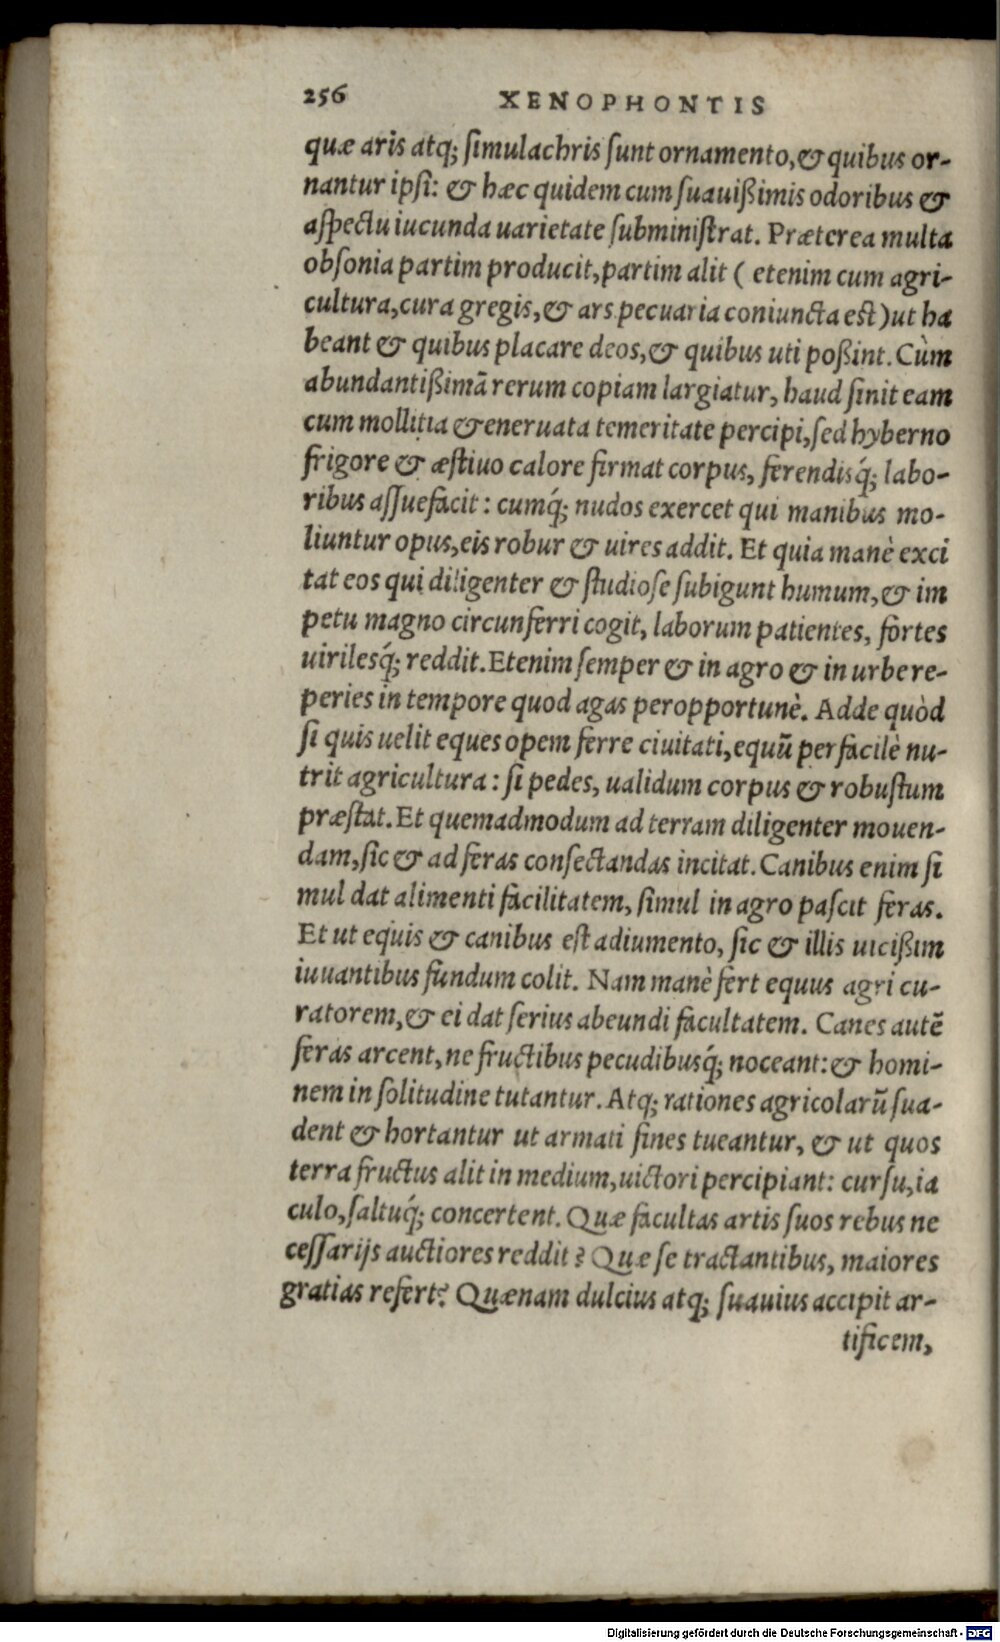 256 XENOPHONTIS
quæ aris atq; ſimulachris ſunt ornamento, & quibus or-
nantur ipſi: & hæc quidem cum ſuauißimis odoribus &
aſpectu iucunda uarietate ſubminiſtrat. Præterea multa
obſonia partim producit, partim alit ( etenim cum agri-
cultura, cura gregis, & ars pecuaria coniuncta est) ut ha
beant & quibus placare deos, & quibus uti poßint. Cùm
abundantißimā rerum copiam largiatur, haud ſinit eam
cum mollitia & eneruata temeritate percipi, ſed hyberno
frigore & æſtiuo calore firmat corpus, ferendisq́; labo-
ribus aſſuefacit: cumq́; nudos exercet qui manibus mo-
liuntur opus, eis robur & uires addit. Et quia manè exci
tat eos qui diligenter & ſtudioſe ſubigunt humum, & im
petu magno circunferri cogit, laborum patientes, fortes
uirilesq́; reddit. Etenim ſemper & in agro & in urbe re-
peries in tempore quod agas peropportunè. Adde quòd
ſi quis uelit eques opem ferre ciuitati, equū perfacilè nu-
trit agricultura: ſi pedes, ualidum corpus & robuſtum
præſtat. Et quemadmodum ad terram diligenter mouen-
dam, ſic & ad feras conſectandas incitat. Canibus enim ſi
mul dat alimenti facilitatem, ſimul in agro paſcit feras.
Et ut equis & canibus eſt adiumento, ſic & illis uicißim
iuuantibus fundum colit. Nam manè fert equus agri cu-
ratorem, & ei dat ſerius abeundi facultatem. Canes autē
feras arcent, ne fructibus pecudibusq́; noceant: & homi-
nem in ſolitudine tutantur. Atq; rationes agricolarū ſua-
dent & hortantur ut armati fines tueantur, & ut quos
terra fructus alit in medium, uictori percipiant: curſu, ia
culo, ſaltuq́; concertent. Quæ facultas artis ſuos rebus ne
ceſſarijs auctiores reddit? Quæ ſe tractantibus, maiores
gratias refert? Quænam dulcius atq; ſuauius accipit ar-
tificem,
Digitalisierung gefördert durch die Deutsche Forschungsgemeinschaft - DFG